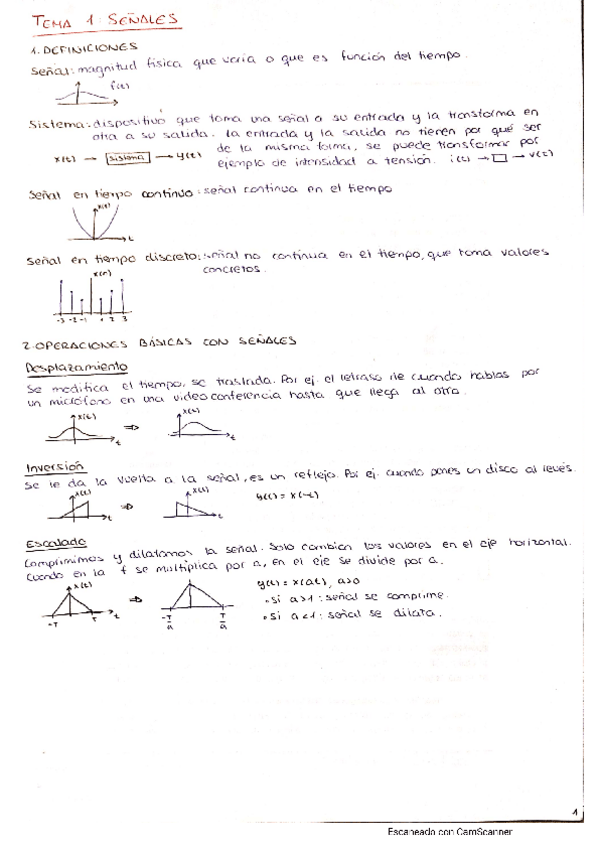 TEMA 1: SEÑALES
1. DEFINICIONES
Señal: magnitud física que varía o que es función del tiempo.
f(t)
Sistema: dispositivo que toma una señal a su entrada y la transforma en
otra a su salida. La entrada y la salida no tienen por qué ser
de la misma forma, se puede transformar por
x(t) → sistema → y(t)
ejemplo de intensidad a tensión. i(t) → □ → v(t)
Señal en tiempo continuo: señal continua en el tiempo
x(t)
t
Señal en tiempo discreto: señal no continua en el tiempo, que toma valores
concretos.
x(n)
-3 -2 -1 1 2 3
2. OPERACIONES BÁSICAS CON SEÑALES
Desplazamiento
Se modifica el tiempo, se traslada. Por ej. el retraso de cuando hablas por
un micrófono en una videoconferencia hasta que llega al otro.
x(t) ⇒ x(t)
t t
Inversión
Se le da la vuelta a la señal, es un reflejo. Por ej. cuando pones un disco al revés.
x(t) ⇒ x(t) y(t) = x(-t)
t t
Escalado
Comprimimos y dilatamos la señal. Solo cambian los valores en el eje horizontal.
Cuando en la f se multiplica por a, en el eje se divide por a.
x(t) ⇒ y(t) = x(at), a>0
• si a>1: señal se comprime.
• si a<1: señal se dilata.
-T T t -T/a T/a
1
Escaneado con CamScanner